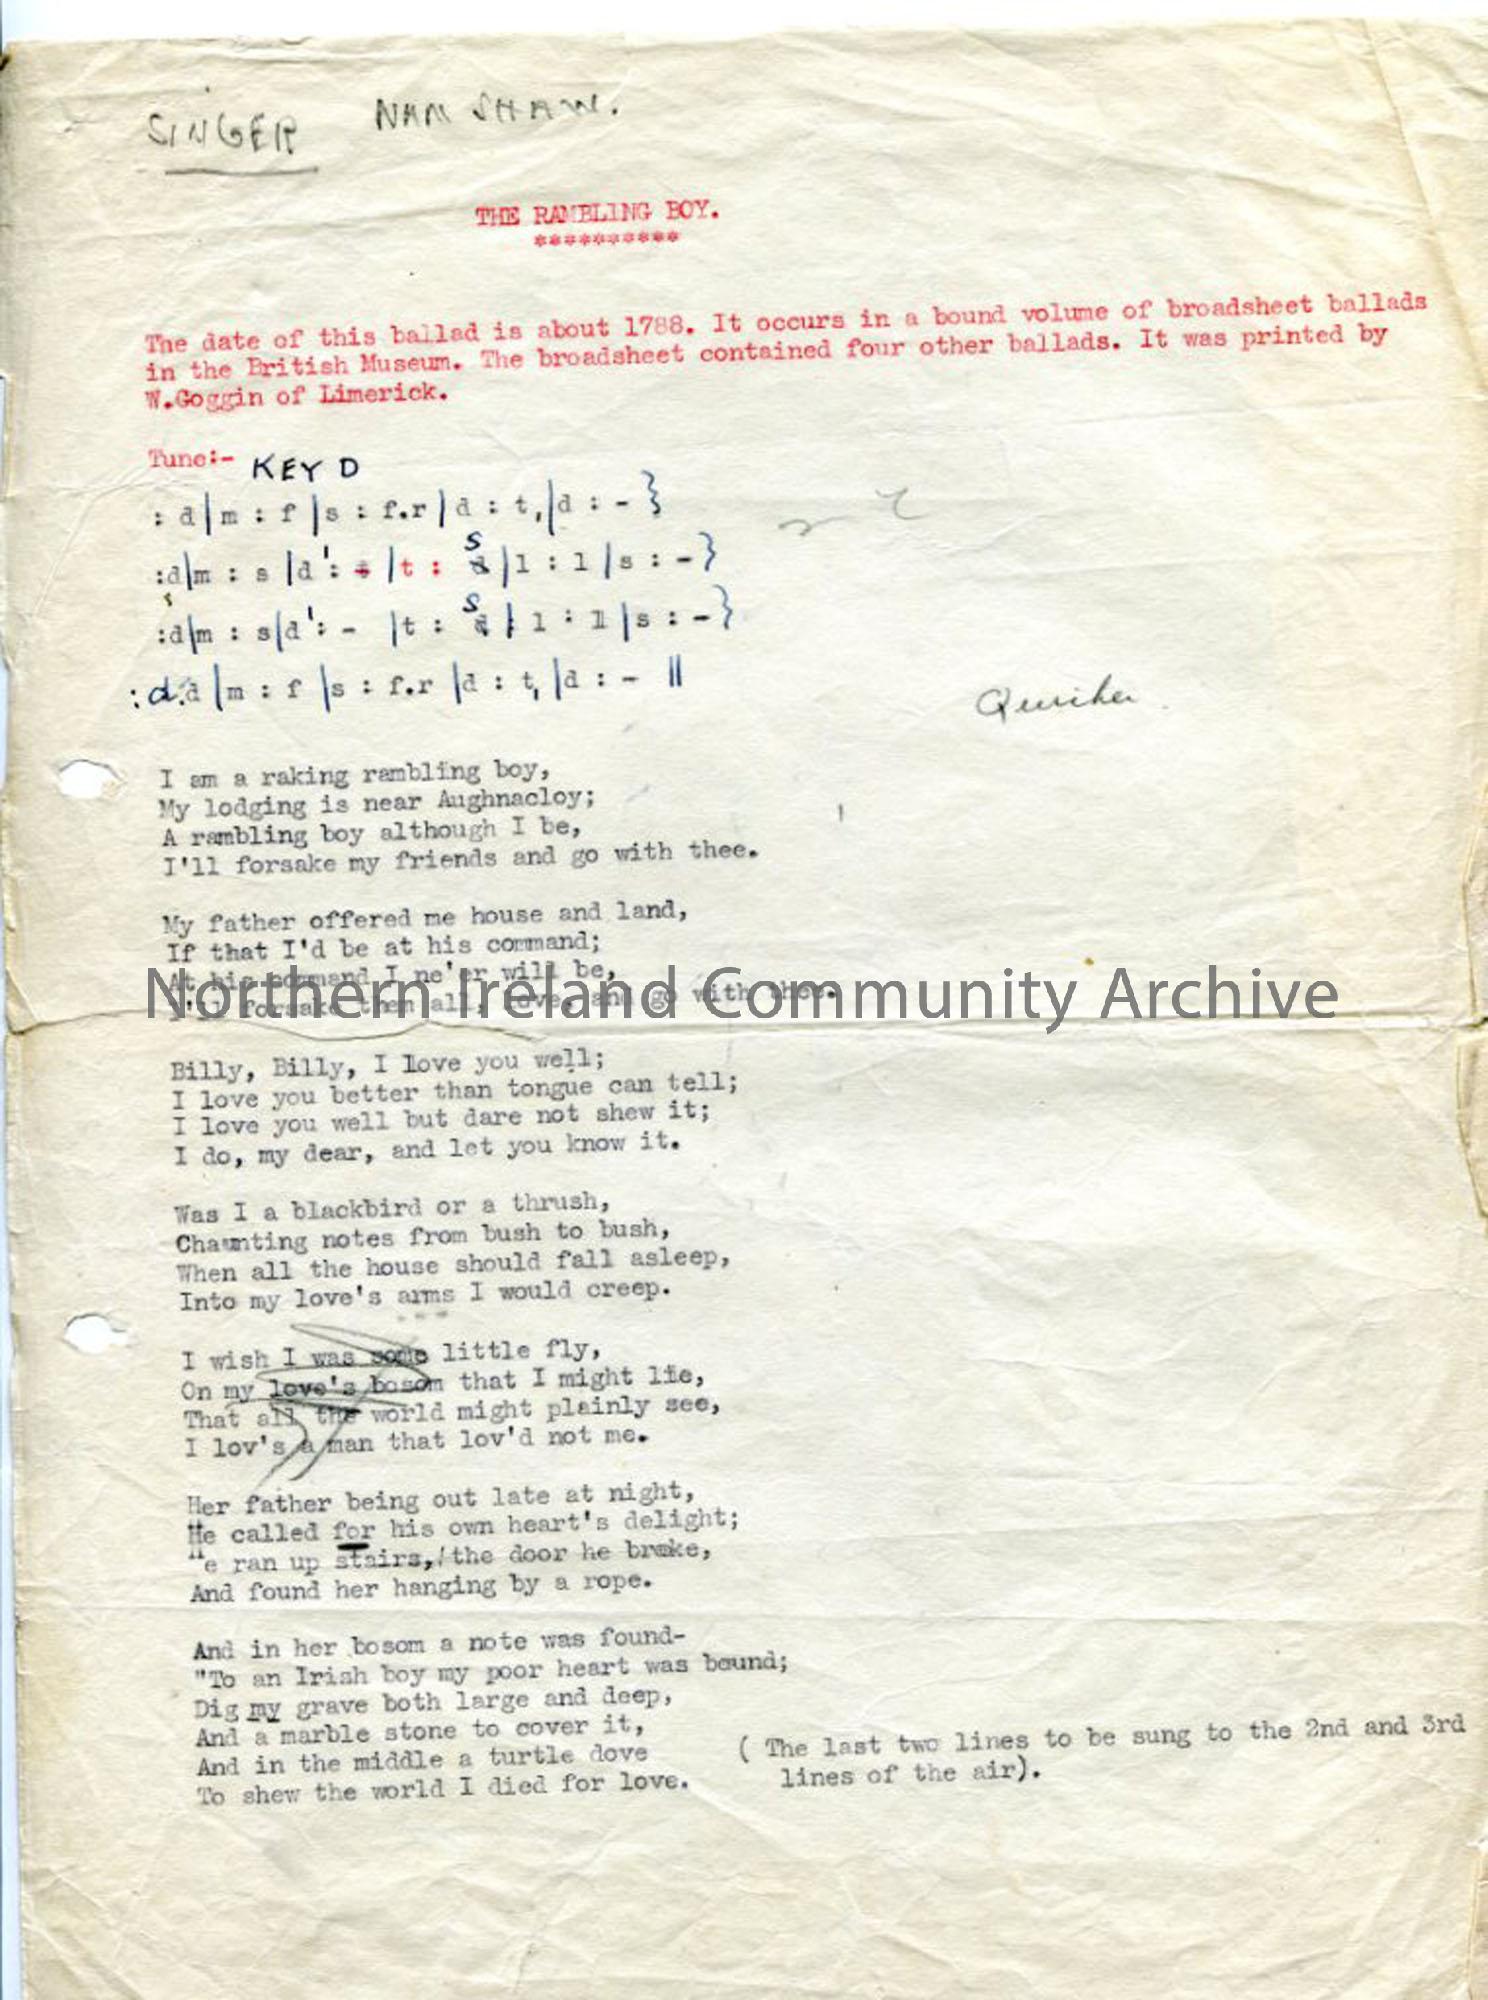 SINGER NAM SHAW.
THE RAMBLING BOY.
**********
The date of this ballad is about 1788. It occurs in a bound volume of broadsheet ballads
in the British Museum. The broadsheet contained four other ballads. It was printed by
W.Goggin of Limerick.
Tune:- KEY D
: d|m : f |s : f.r|d : t,|d : - }
:d|m : s |d' : s |t : s |l : l |s : - }
:d|m : s|d' : - |t : s | l : l |s : - }
: d.d |m : f |s : f.r |d : t, |d : - ||
Quicker
I am a raking rambling boy,
My lodging is near Aughnacloy;
A rambling boy although I be,
I'll forsake my friends and go with thee.
My father offered me house and land,
If that I'd be at his command;
At his command I ne'er will be,
I'll forsake them all, love, and go with thee.
Northern Ireland Community Archive
Billy, Billy, I love you well;
I love you better than tongue can tell;
I love you well but dare not shew it;
I do, my dear, and let you know it.
Was I a blackbird or a thrush,
Chaunting notes from bush to bush,
When all the house should fall asleep,
Into my love's arms I would creep.
I wish I was some little fly,
On my love's bosom that I might lie,
That all the world might plainly see,
I lov's a man that lov'd not me.
Her father being out late at night,
He called for his own heart's delight;
He ran up stairs, the door he broke,
And found her hanging by a rope.
And in her bosom a note was found-
"To an Irish boy my poor heart was bound;
Dig my grave both large and deep,
And a marble stone to cover it,
And in the middle a turtle dove
To shew the world I died for love.
( The last two lines to be sung to the 2nd and 3rd
lines of the air).